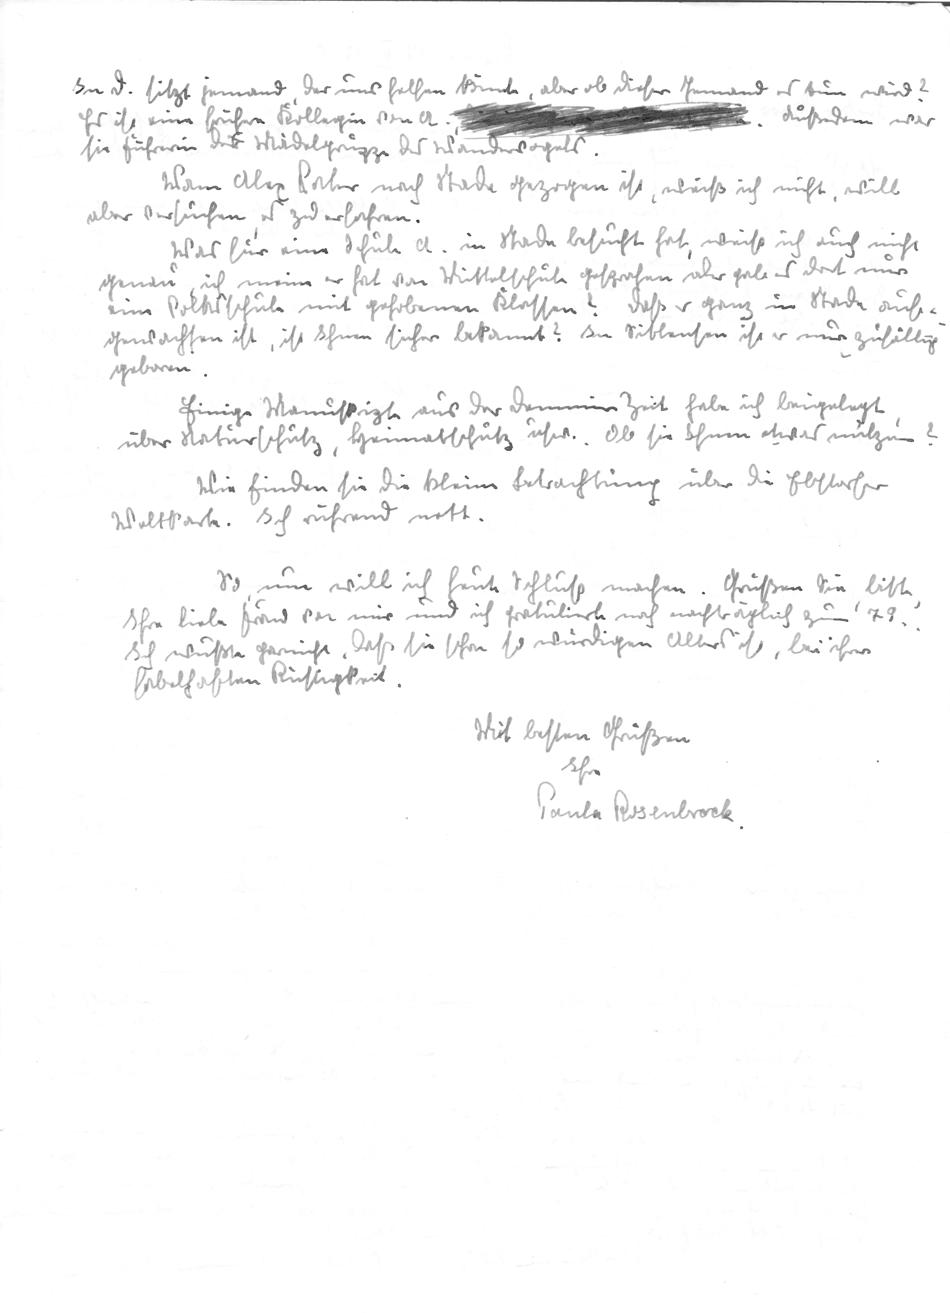 In D. sitzt jemand, der uns helfen könnte, aber ob dieser Jemand es tun wird?
Es ist eine frühere Kollegin von A., . Außerdem war
sie Führerin der Mädelgruppe des Wandervogels.
Wann Alex nach Stade gezogen ist, weiß ich nicht, will
aber versuchen, es zu erfahren.
Was für eine Schule A. in Stade besucht hat, weiß ich auch nicht
genau, ich meine er hat von Mittelschule gesprochen aber gab es dort nur
eine Volksschule mit gehobenen Klassen? Daß er ganz in Stade aufge-
gewachsen ist, ist Ihnen sicher bekannt? In ist er nur zufällig
geboren.
Einige Manuskripte aus der Demminer Zeit habe ich beigelegt,
über Naturschutz, Heimatschutz usw.. Ob sie Ihnen etwas nützen?
Wie finden sie die kleine Betrachtung über die Ebstorfer
Weltkarte. Ich rührend nett.
So, nun will ich heute Schluß machen. Grüßen Sie, bitte,
Ihre liebe von mir und ich gratulierte noch nachträglich zum 79..
Ich wußte garnicht, daß sie schon so würdigen Alters ist, bei ihrer
fabelhaften Rüstigkeit.
Mit besten Grüßen
Ihre
Paula Rosenbrock.